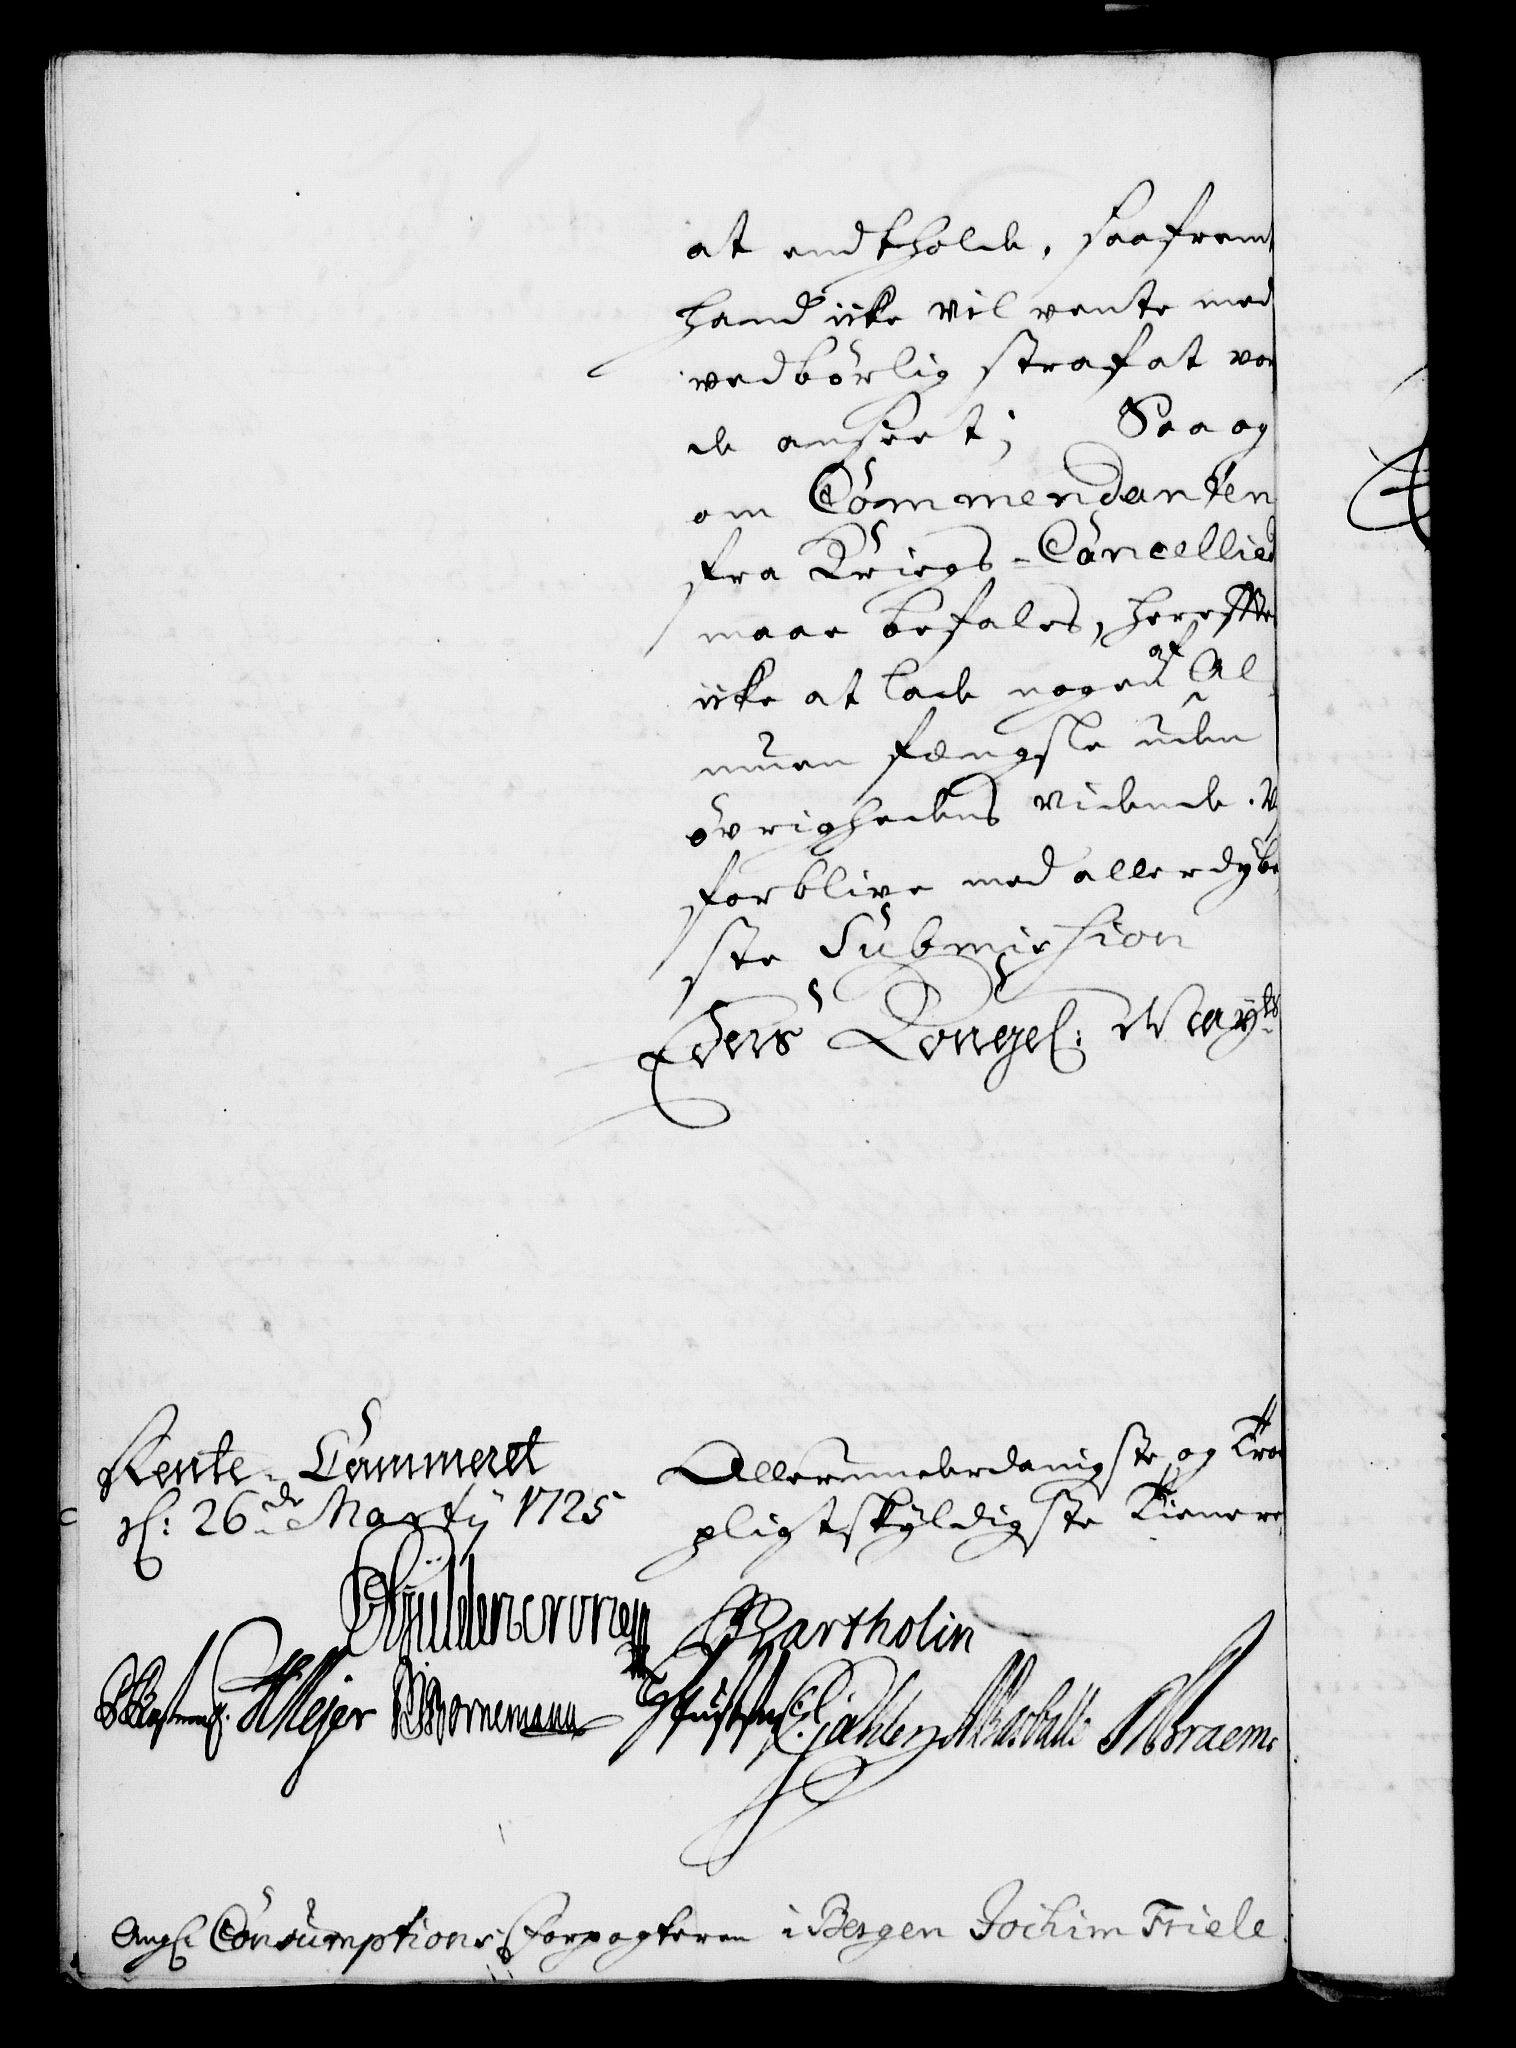 at endtholde, saafremt
hand icke vil vente med
vedbörlig straf at vor
de anseet; Saa og
om Commendanten
fra Kriegs-Cancellied
maae befales, herefter
icke at lade nogen af Al
muen fængsle uden
övrighedens vidende. V
forblive med allerdybe
ste Submission
Eders Kongel: Mayts
Rente-Cammeret
d: 26de Martij 1725
Allerunderdanigste og Troe
pligtskyldigste Tienere
Güldencrone Bartholin
Meyer Bornemann Braem
Angl Consumptions Forpagteren i Bergen Jochim Friele